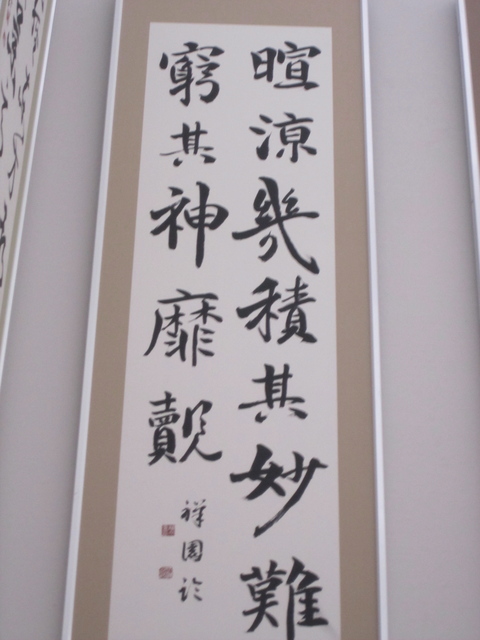 暄涼幾積其妙難
窮其神靡覿
祥園